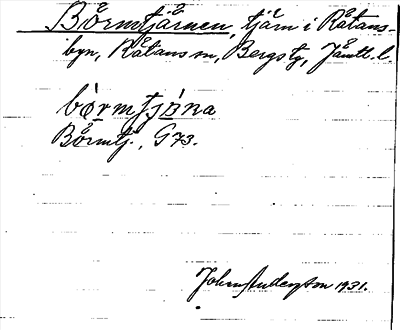 Börmtjärnen, tjärn i Rätans-
byn, Rätans sn, Bergs tg, Jämtl. l.
börmtjäna
Börmtj., G73.
John Anderson 1931.